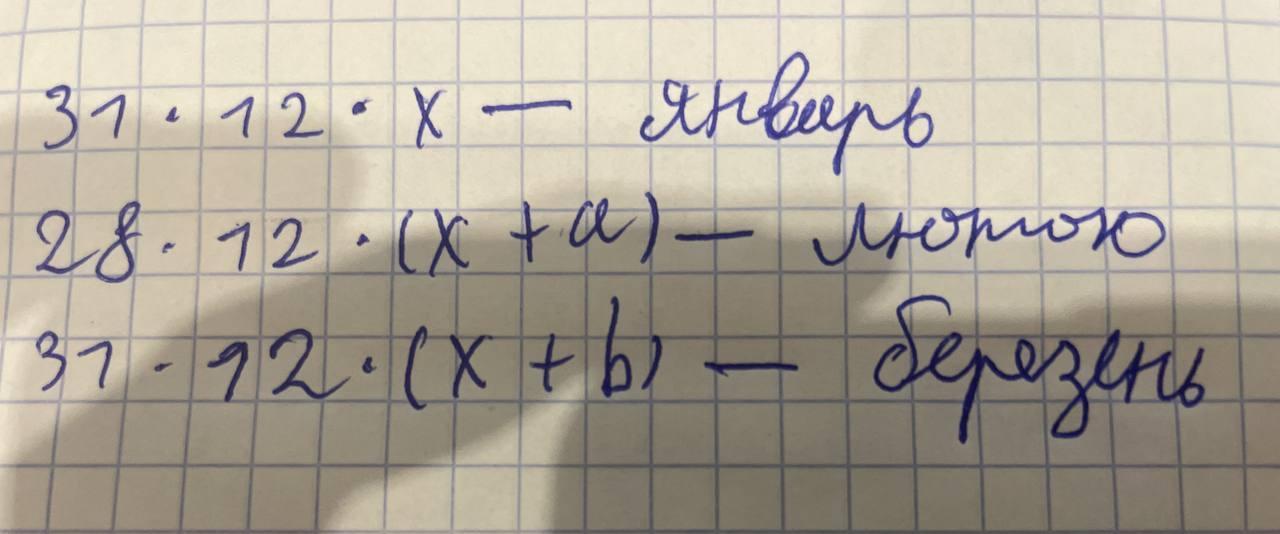 31 · 12 · x — январь
28 · 12 · (x + a) — лютого
31 · 12 · (x + b) — березень